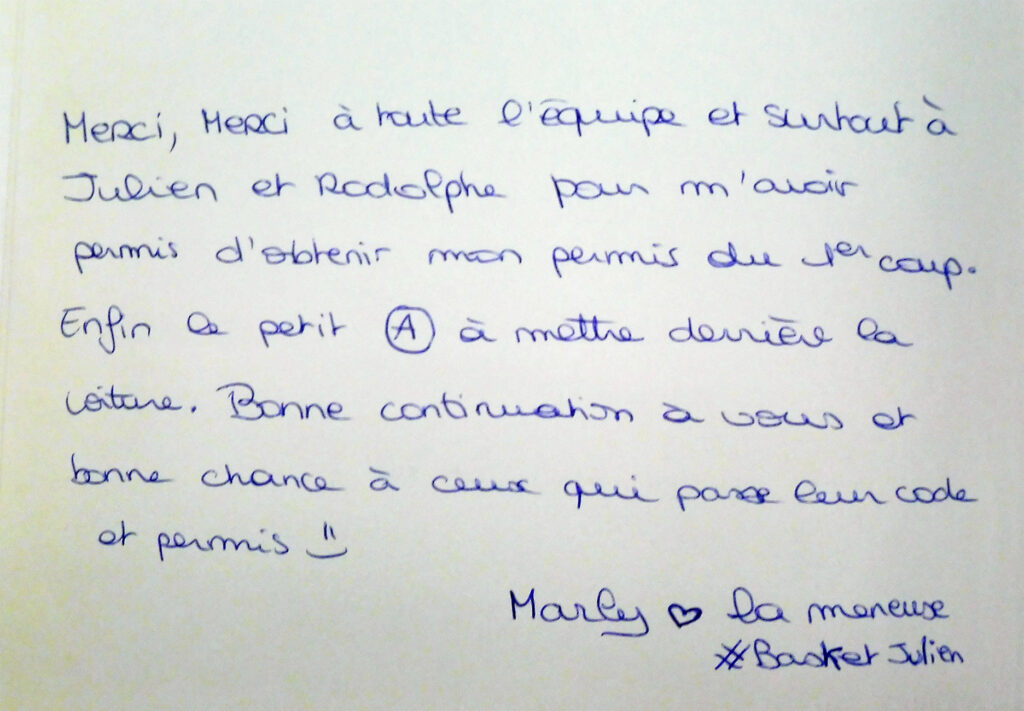 Merci, Merci à toute l'équipe et surtout à
Julien et Rodolphe pour m'avoir
permis d'obtenir mon permis du 1er coup.
Enfin le petit A à mettre derrière la
voiture. Bonne continuation à vous et
bonne chance à ceux qui passe leur code
et permis
Marly ♡ la meneuse
#Basket Julien